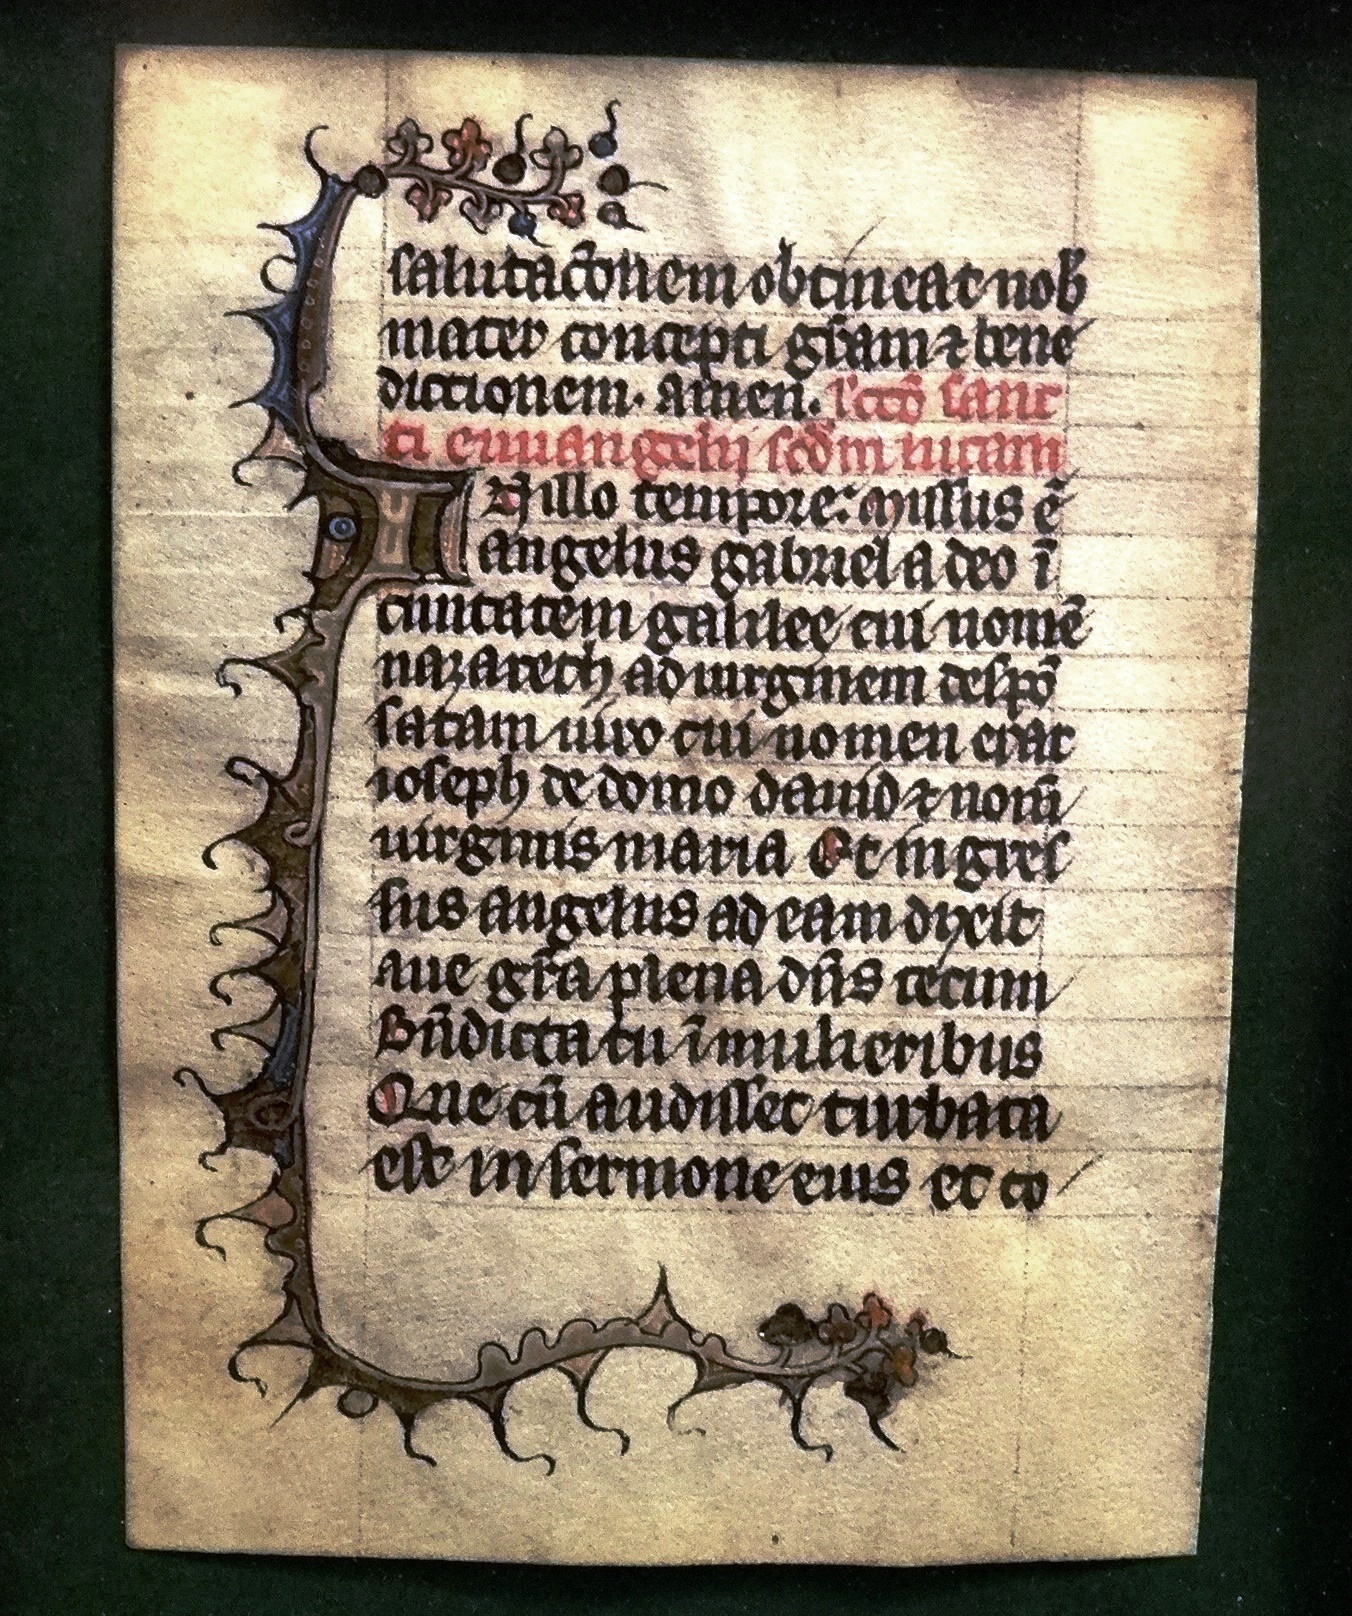 salutac̃onem obtineat nob̃
mater concepti gr̃am ⁊ bene
dictionem. amen. l'cc̃o sanc
ti euuangelij sc̃dm lucam
In illo tempore: missus ẽ
angelus gabriel a deo ĩ
ciuitatem galilee cui nomẽ
nazareth ad uirginem despõ
satam uiro cui nomen erat
ioseph de domo dauid ⁊ nom̃
uirginis maria Et ingres
sus angelus ad eam dixit
aue gr̃a plena dñs tecum
Bñdicta tu ĩ mulieribus
Que cũ audisset turbata
est in sermone eius et co